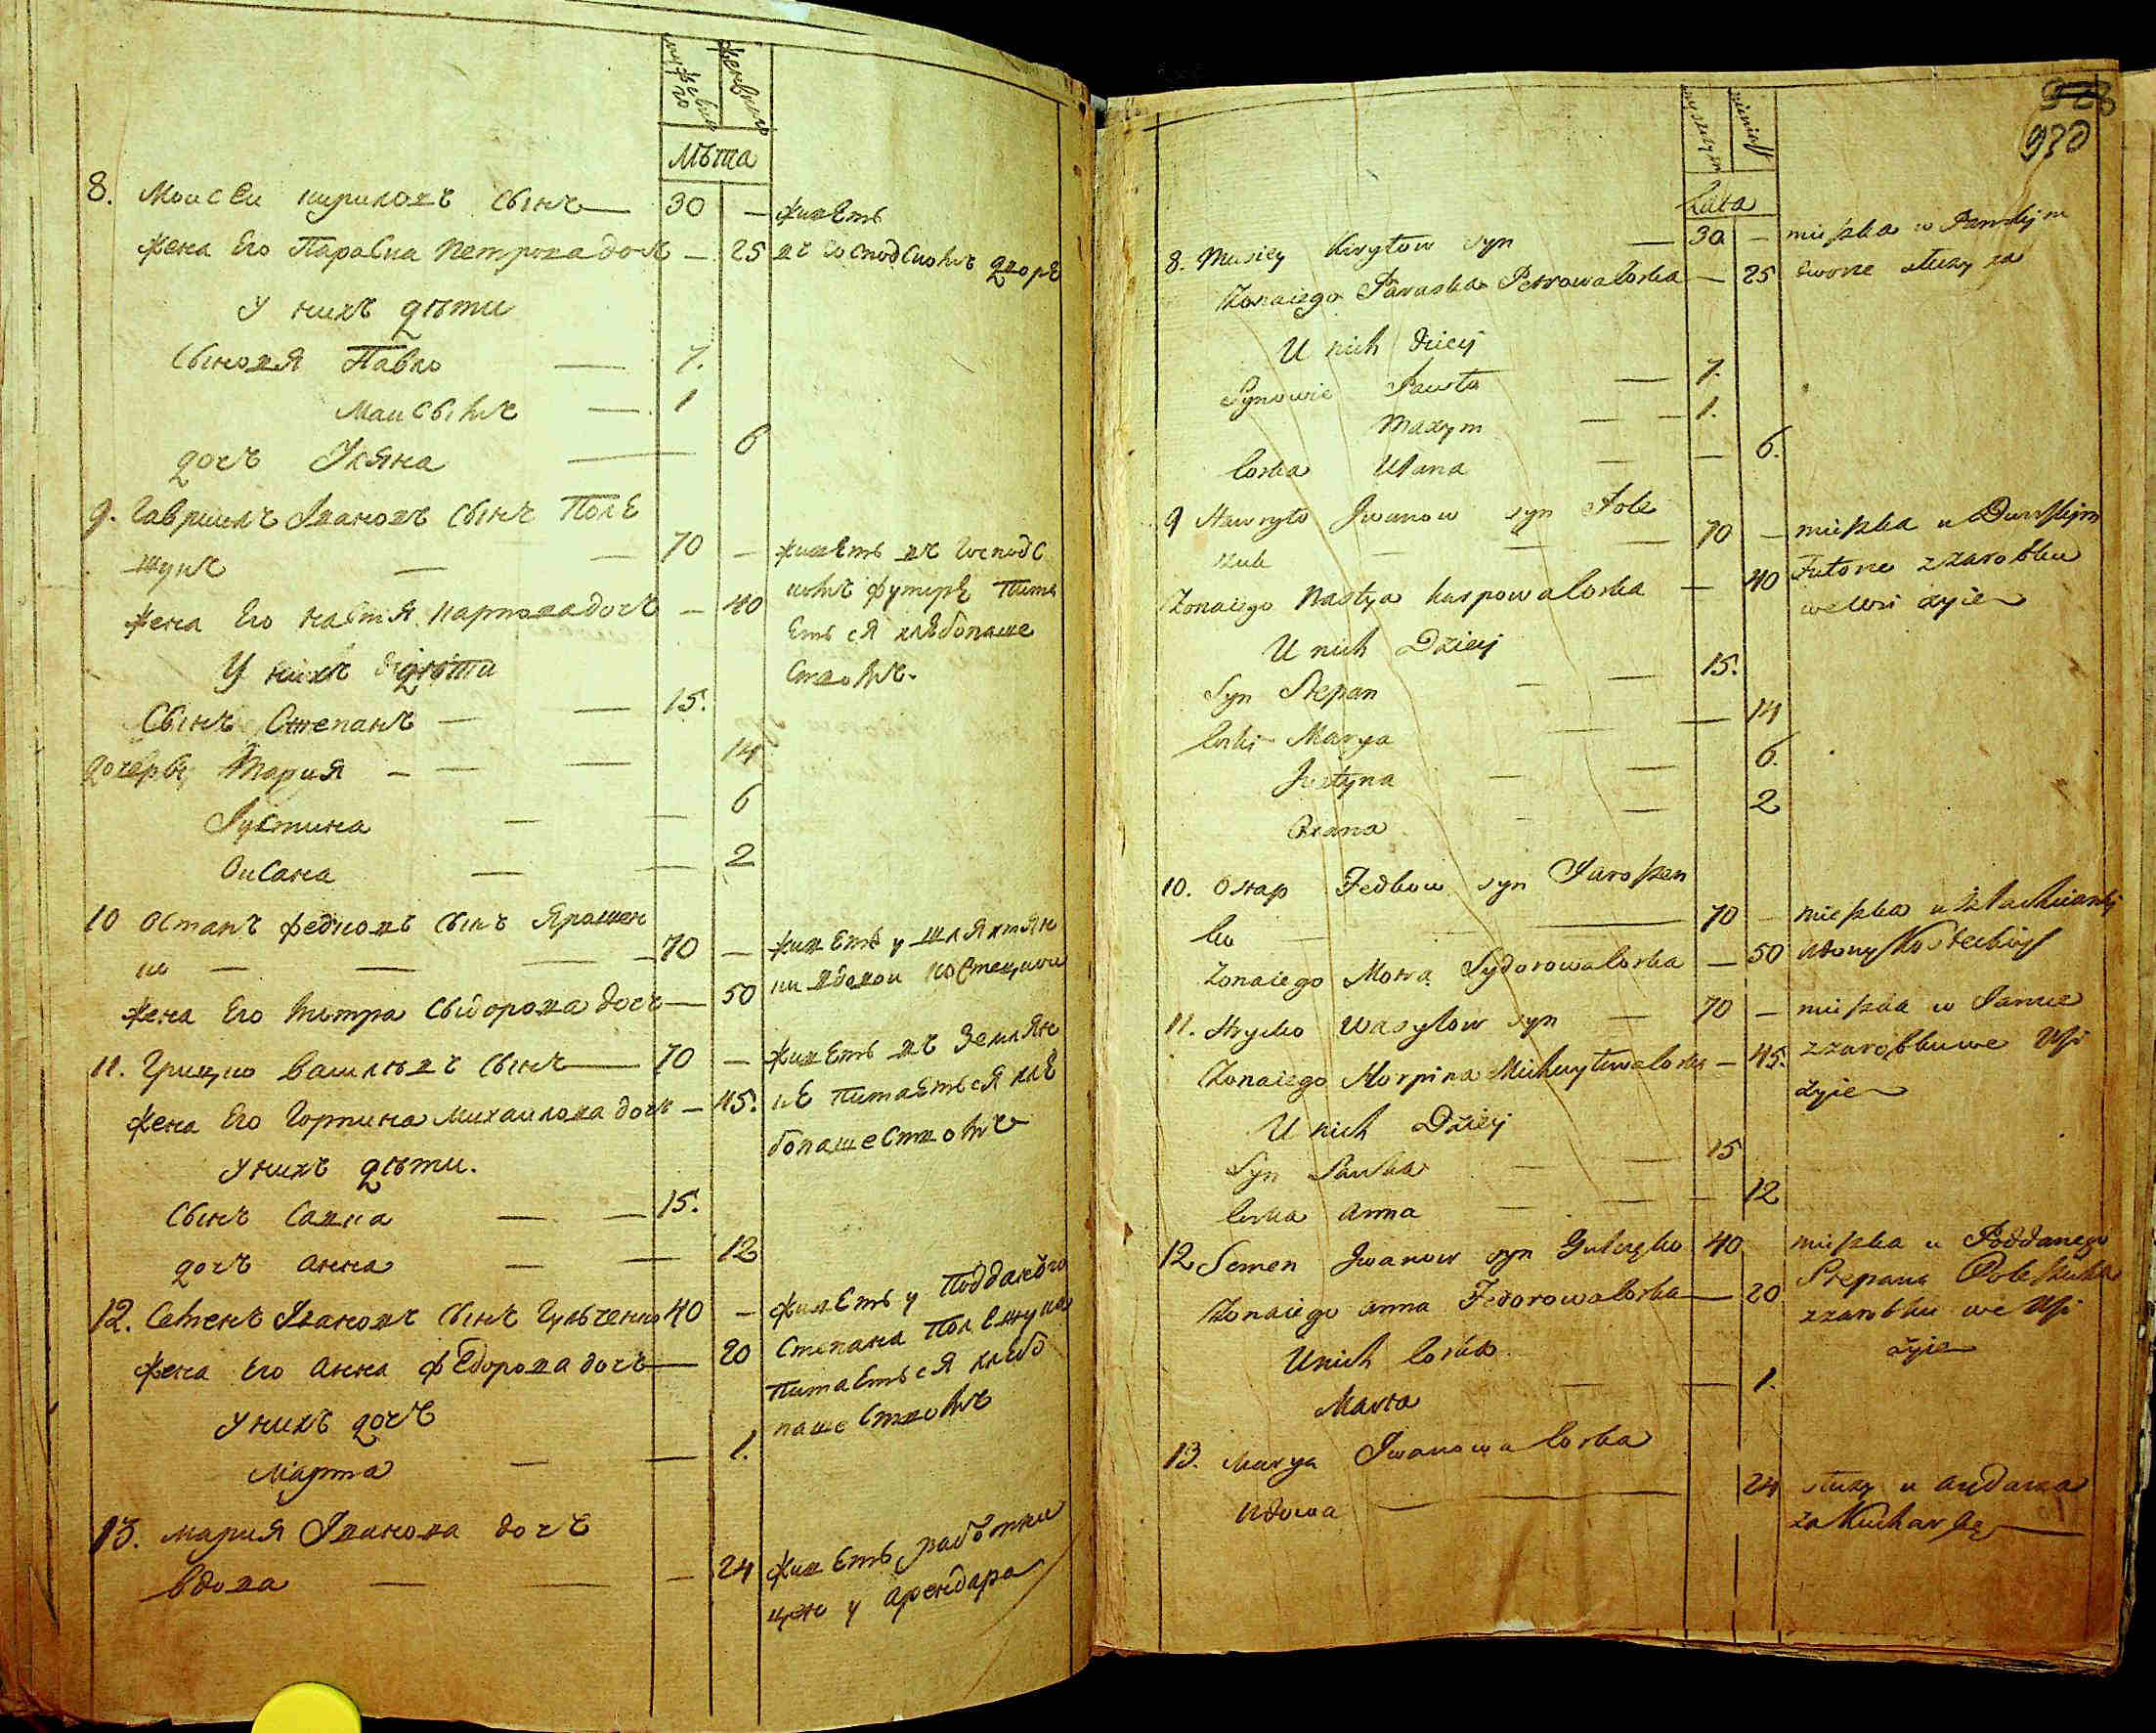 мужеска го
женскаго
Лѣта
8. Моисеи кириловъ сынъ — 30 — живетъ
жена Его Параска Петрова доч — 25 въ господскомъ дворѣ
У нихъ дѣти
Сыновя Павло — 7.
— 1
дочъ Уляна — 6
9. Гаврилъ Ивановъ сынъ Поле
щукъ — 70 — живетъ въ господс
жена Его настя карпова дочъ — 40 комъ футорѣ пита
У нихъ дѣти
етъ ся хлѣбопаше
Сынъ Степанъ — 15. ством.
дочеры Мария — 14
Іустина — 6
Оксана — 2
10 Остапъ федковъ сынъ Ярошен
ко — 70 — живетъ у шляхтян
жена Его мотра Сыдорова дочъ — 50 ки вдовы костецкои
11. Грицко василювъ сынъ — 70 — живетъ въ Землян
жена Его Горпина михаилова доч — 45. кѣ питаеться хлѣ
бопашествомъ
У нихъ дѣти.
Сынъ Савка — 15.
дочъ анна — 12
12. Семенъ Ивановъ сынъ Гульченко 40 — живетъ у подданого
жена Его анна федорова дочъ — 20 Степана Полещука
У нихъ дочъ питаеться хлѣбо
Марта — 1. пашествомъ
13. мария Иванова дочъ
вдова — 24 живетъ работни
цею у арендара
928
930
Lata
8. Musiey Kirylow syn — 30 — mieszka w Panskim
Zona iego Paraska Petrowa Corka — 25 dworze służy za
U nich dzieci
Synowie Pawło — 7.
Maxym — 1.
Corka Ulana — 6.
9 Hawryło Iwanow syn Pole
szuk — 70 — mieszka w Dworskim
Zona iego Nastya Karpowa Corka — 40 Futorze z zarobku
we wsi żyie
U nich Dzieci
Syn Stepan — 15.
Corki Marya — 14
Justyna — 6.
Oxana — 2
10. Ostap Fedkow syn Jaroszen
ko — 70 — mieszka u szlachcianki
Zona iego Motra Sydorowa Corka — 50 wdowy Kosteckiey
11. Hrycko Wasylow syn — 70 — mieszka w Jamie
Zona iego Horpina Michayłowa Corka — 45. z zarobku we wsi
żyie
U nich Dzieci
Syn Sawka — 15
Corka Anna — 12
12 Semen Iwanow syn Gulczęko 40 mieszka u Poddanego
Zona iego Anna Fedorowa Corka — 20 Stepana Poleszuka
z zarobku we wsi
U nich Corka żyie
Marta — 1.
13. Marya Iwanowa Corka
wdowa — 24 służy u arędarza
za Kucharkę